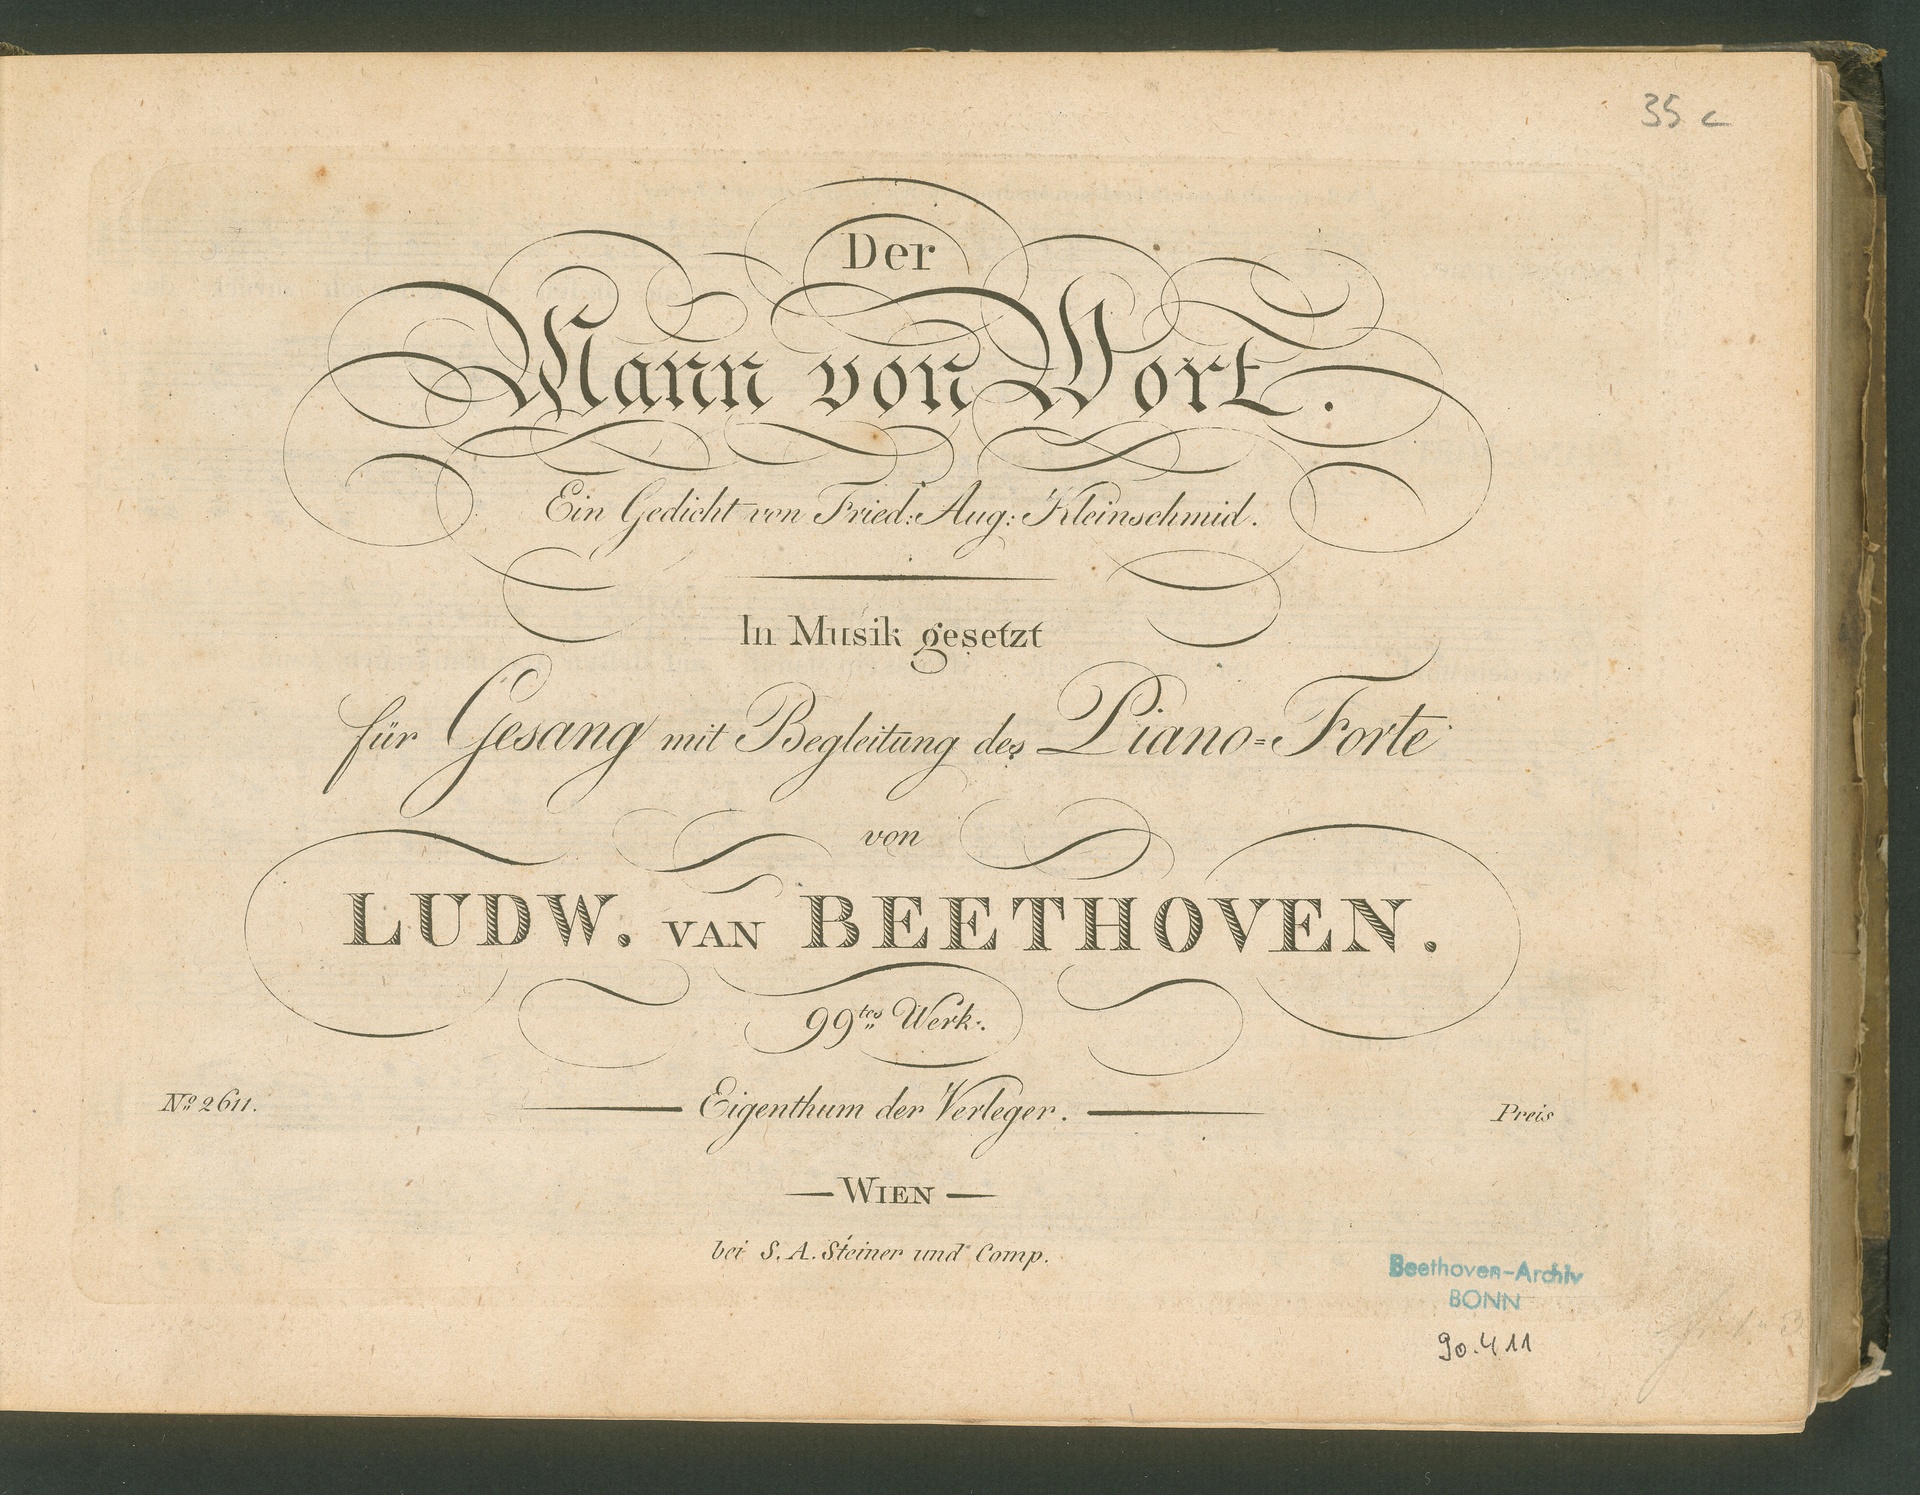 35 c
Der
Mann von Wort.
Ein Gedicht von Fried: Aug: Kleinschmid.
In Musik gesetzt
für Gesang mit Begleitung des Piano=Forte
von
LUDW. VAN BEETHOVEN.
99tes Werk.
No 2611. Eigenthum der Verleger. Preis
WIEN
bei S. A. Steiner und Comp.
Beethoven-Archiv
BONN
90.411